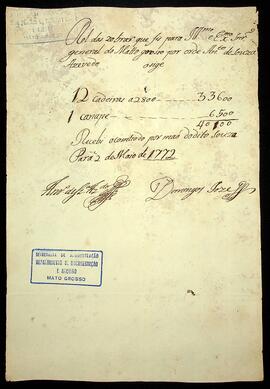 Rol das obras que fis para Illmo e Exmo Snr
general do Mato groso por orde de Souza
Azevedo
12 cadeiras a 2800 33600
1 canape 6500
40100
Recebi o contiudo por mão do dito Souza
Pará 2 de Maio de 1772
Domingos Joze
SECRETARIA DE ADMINISTRAÇÃO
DEPARTAMENTO DE DOCUMENTAÇÃO
E ARQUIVO
MATO GROSSO